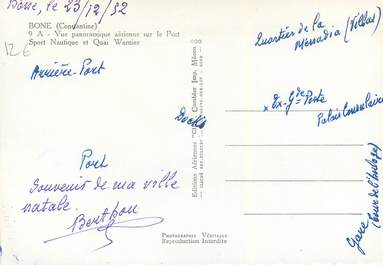 Bone, le 23/12/52
BONE (Constantine)
9 A - Vue panoramique aérienne sur le Port
Sport Nautique et Quai Warnier
12 €
Arrière-Port
Port
Souvenir de ma ville
natale.
Berthou
PHOTOGRAPHIE VÉRITABLE
Reproduction Interdite
Docks
Editions Aériennes "CIM" Combier Imp. Mâcon
Quartiers de la
Menadia (Villas)
x Ex-Gde Poste
Palais Consulaire
Gare
(Tour de l'horloge)